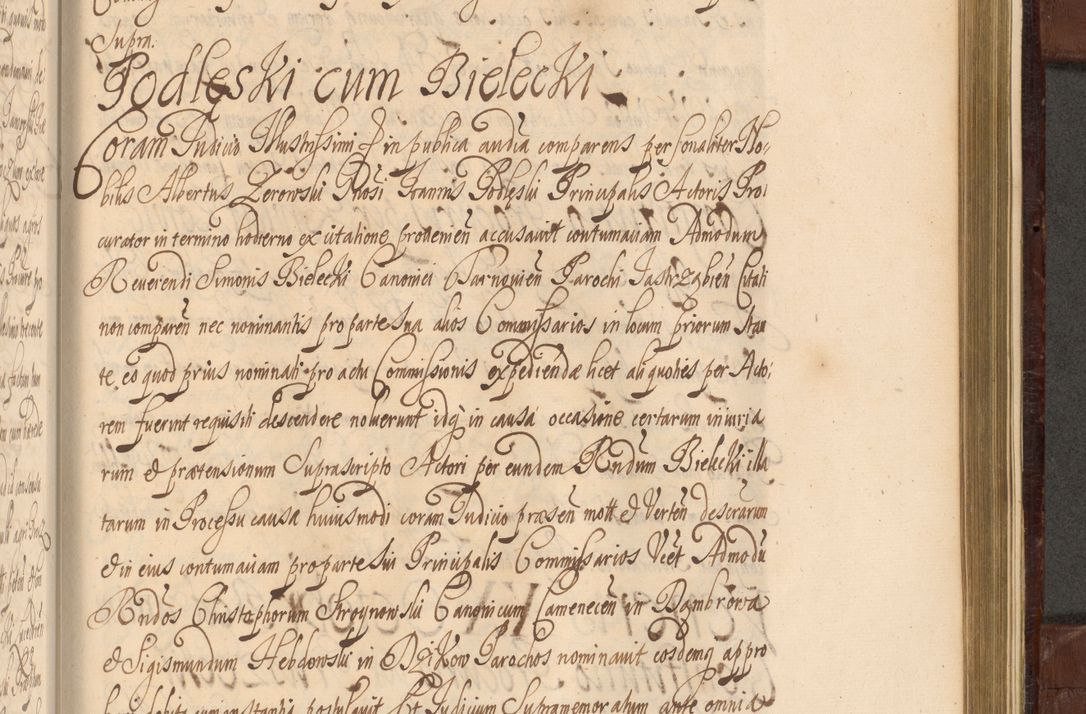 Supra.
Podlęski cum Bielecki.
Coram Iudicio Illustrissimi in publica audia comparens personaliter No-
bilis Albertus Zerowski Gnosi Ioannis Podlęski Principalis Actoris Pro-
curator in termino hodierno ex citatione provenien accusavit contumaciam Admodum
Reverendi Simonis Bielecki Canonici Tarnovien Parochi Iastrzębien Citati
non comparen nec nominantis pro parte sua alios Commissarios in locum priorum
te eo quod prius nominati pro actu Commissionis expediendæ licet aliquoties per Acto-
rem fuerint requisiti descendere noluerunt idq in causa occasione certarum iniuria
rum et prætensionum Suprascripto Actori per eundem Rndum Bielecki illa
tarum in Processu causa huiusmodi coram Iudicio præsen mott et Verten descrarum
et in eius contumaciam pro parte sui Principalis Commissarios Vcet Admodu
Rndos Christophorum Stroynowski Canonicum Camenecen in Dąmbrowa
et Sigismundum Hebdowski in Dzikow Parochos nominavit eosdemq appro
debite cum instantia postulavit Et Iudicium Supramemoratum ante omnia